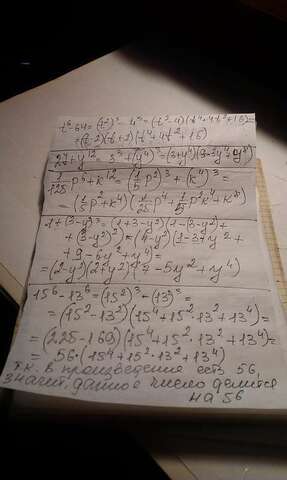 t⁶-64=(t²)³-4³=(t²-4)(t⁴+4t²+16)=
=(t-2)(t+2)(t⁴+4t²+16)
27+y¹²=3³+(y⁴)³=(3+y⁴)(9-3y⁴+y⁸)
1/125 p⁶+k¹²=(1/5 p²)³+(k⁴)³=
=(1/5 p²+k⁴)(1/25 p⁴+1/5 p²k⁴+k⁸)
1+(3-y²)³=(1+3-y²)(1-(3-y²)+
+(3-y²)²)=(4-y²)(1-3+y²+
+9-6y²+y⁴)=
=(2-y)(2+y)(7-5y²+y⁴)
15⁶-13⁶=(15²)³-(13²)³=
=(15²-13²)(15⁴+15²·13²+13⁴)=
=(225-169)(15⁴+15²·13²+13⁴)=
=56·(15⁴+15²·13²+13⁴)
т.к. в произведение есть 56,
значит данное число делится
на 56